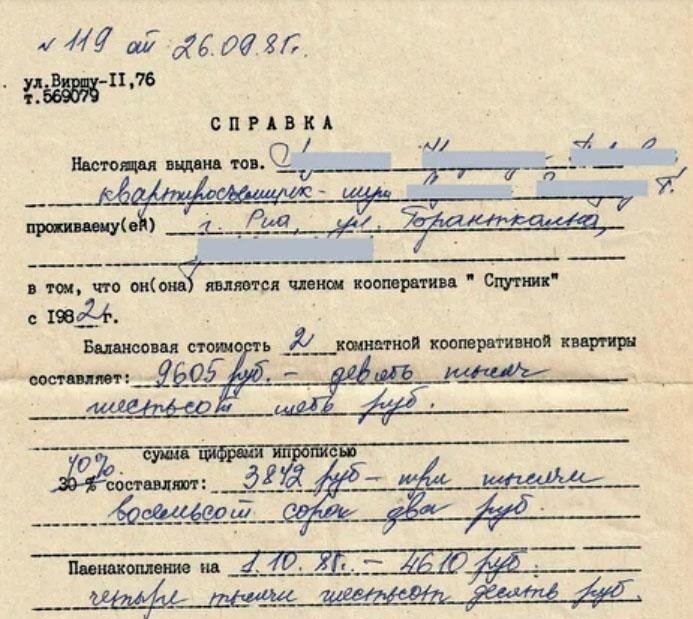 № 119 от 26.09.85г.
ул.Виршу-II,76
т.569079
СПРАВКА
Настоящая выдана тов.
квартиросъемщик -
проживаему(ей) г. Рига, ул.
в том, что он(она) является членом кооператива " Спутник"
с 1982г.
Балансовая стоимость 2 комнатной кооперативной квартиры
составляет: 9605 руб. - девять тысяч
шестьсот пять руб.
сумма цифрами ипрописью
40%
30 % составляют: 3842 руб - три тысячи
восемьсот сорок два руб
Паенакопление на 1.10.85г. - 4610 руб.
четыре тысячи шестьсот десять руб.